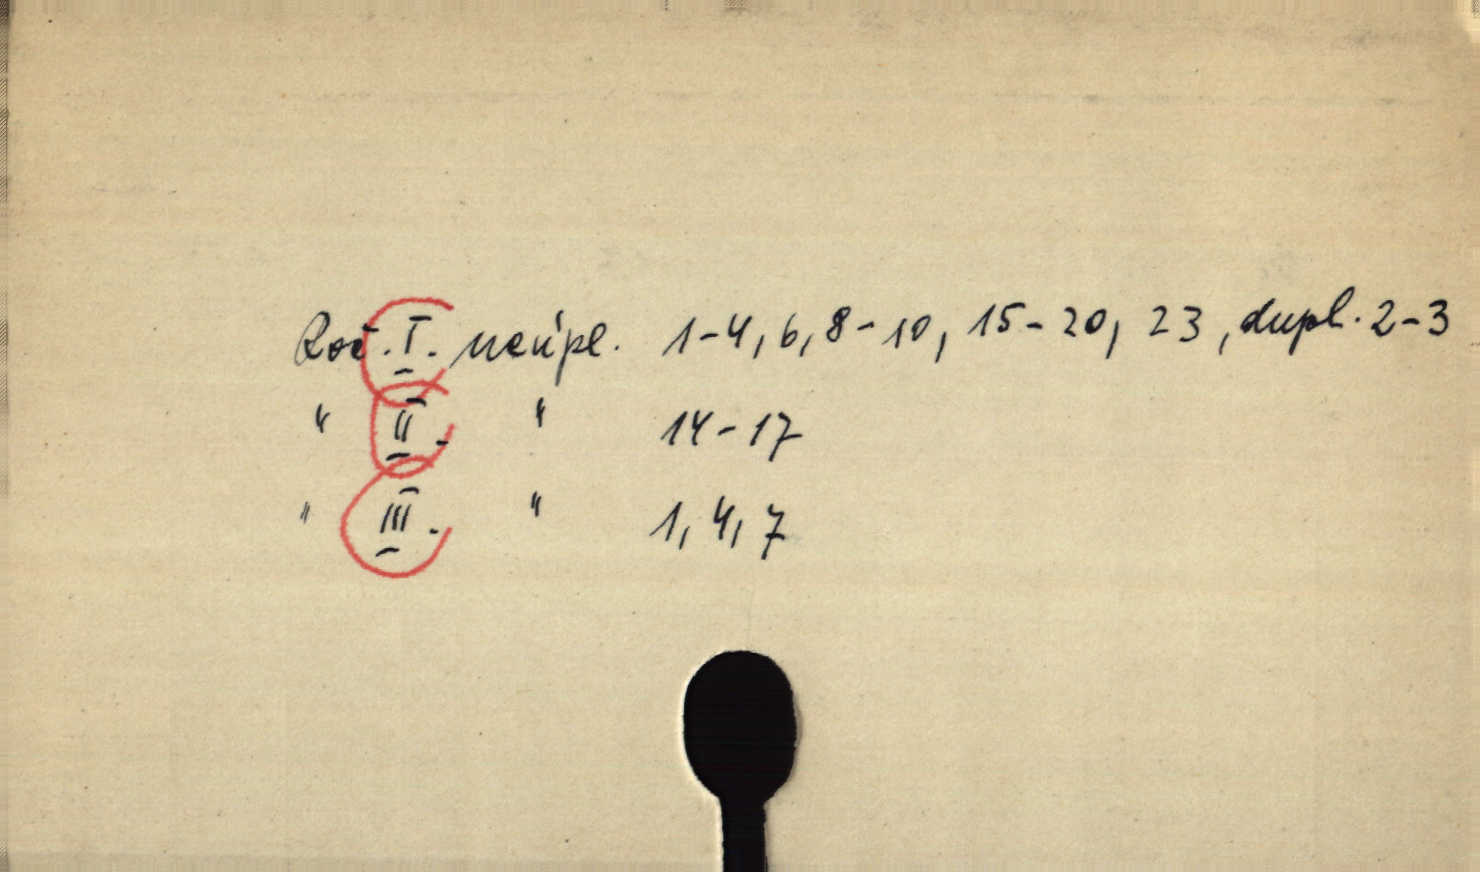 Roč. I. neúpl. 1-4, 6, 8-10, 15-20, 23, dupl. 2-3
" II. " 14-17
" III. " 1, 4, 7